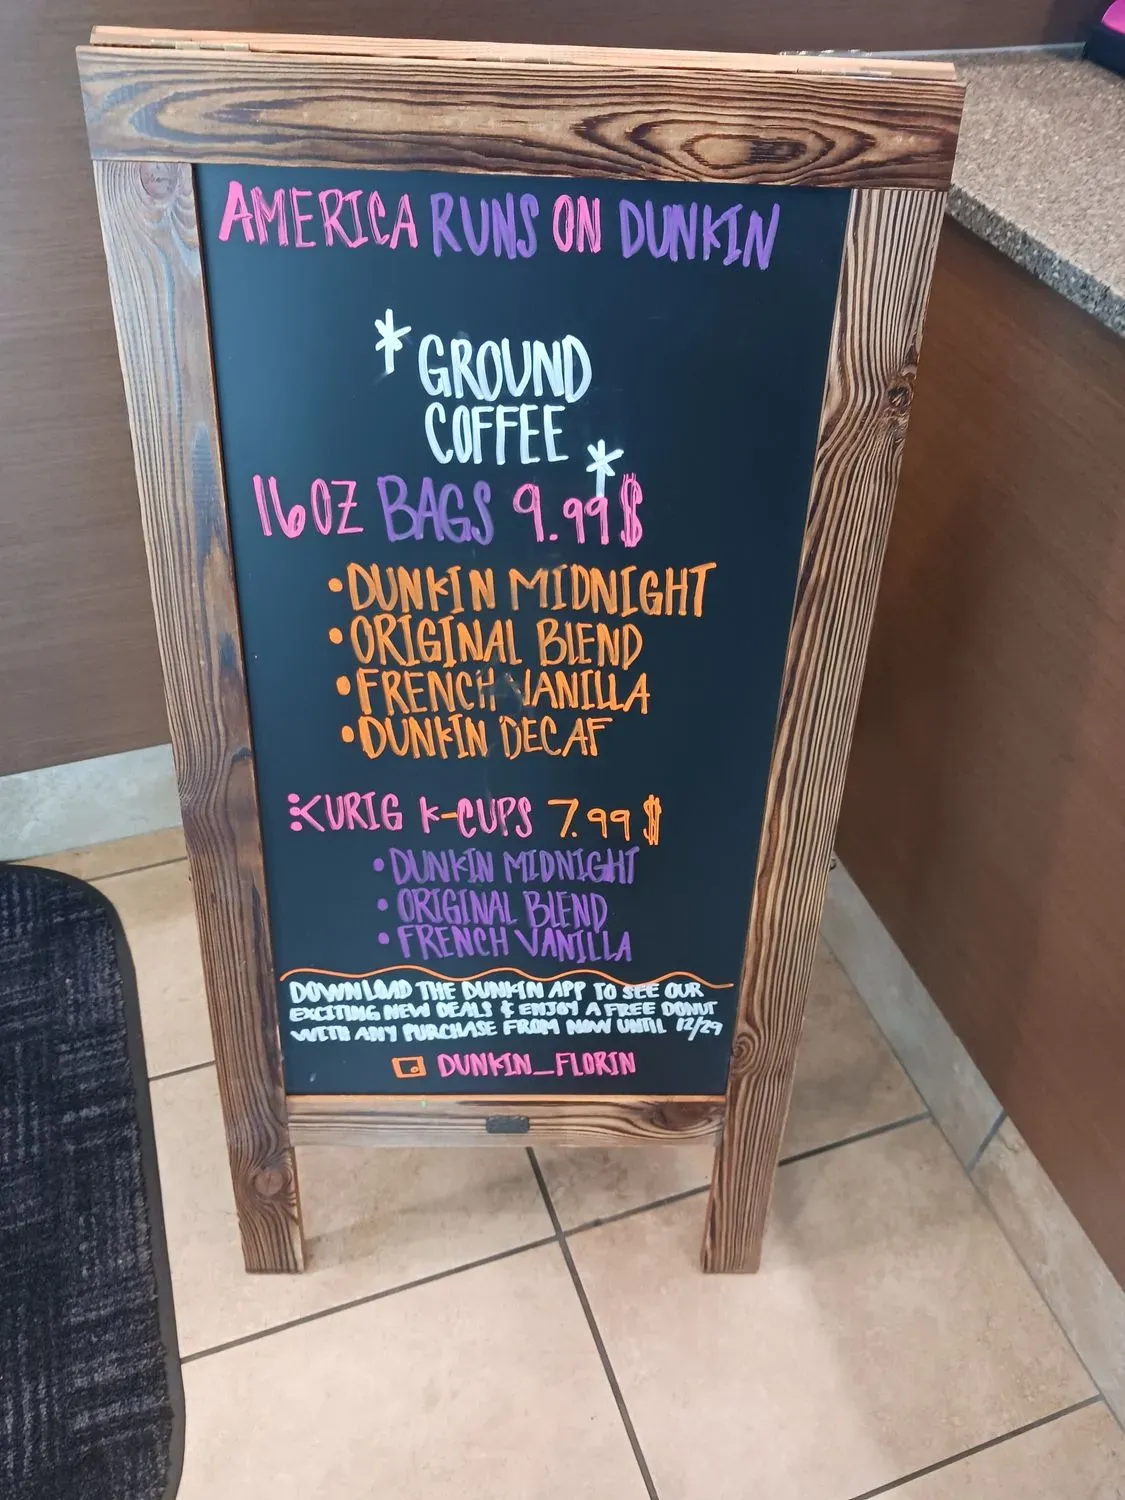 AMERICA RUNS ON DUNKIN
* GROUND
COFFEE *
16OZ BAGS 9.99$
• DUNKIN MIDNIGHT
• ORIGINAL BLEND
• FRENCH VANILLA
• DUNKIN DECAF
:KURIG K-CUPS 7.99$
• DUNKIN MIDNIGHT
• ORIGINAL BLEND
• FRENCH VANILLA
DOWNLOAD THE DUNKIN APP TO SEE OUR
EXCITING NEW DEALS & ENJOY A FREE DONUT
WITH ANY PURCHASE FROM NOW UNTIL 12/29
DUNKIN_FLORIN